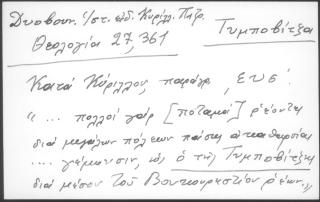 Δυοβουν. ἱστ. εἰδ. Κυρίλλ. Πέτρ.
Θεολογία 27, 361
Τυμποβίτζα
Κατά Κύριλλον, παράγρ. , ΕΥΣ΄.
"... πολλοί γάρ [ποταμοί] ρέοντες
διά μεγάλων πόλεων πάσης ἀκαθαρσίας
.... γέμουσιν, ὡς ὁ τῆς Τυμποβίτζης
διά μέσου τοῦ Βουκουρεστίου ρέων.»